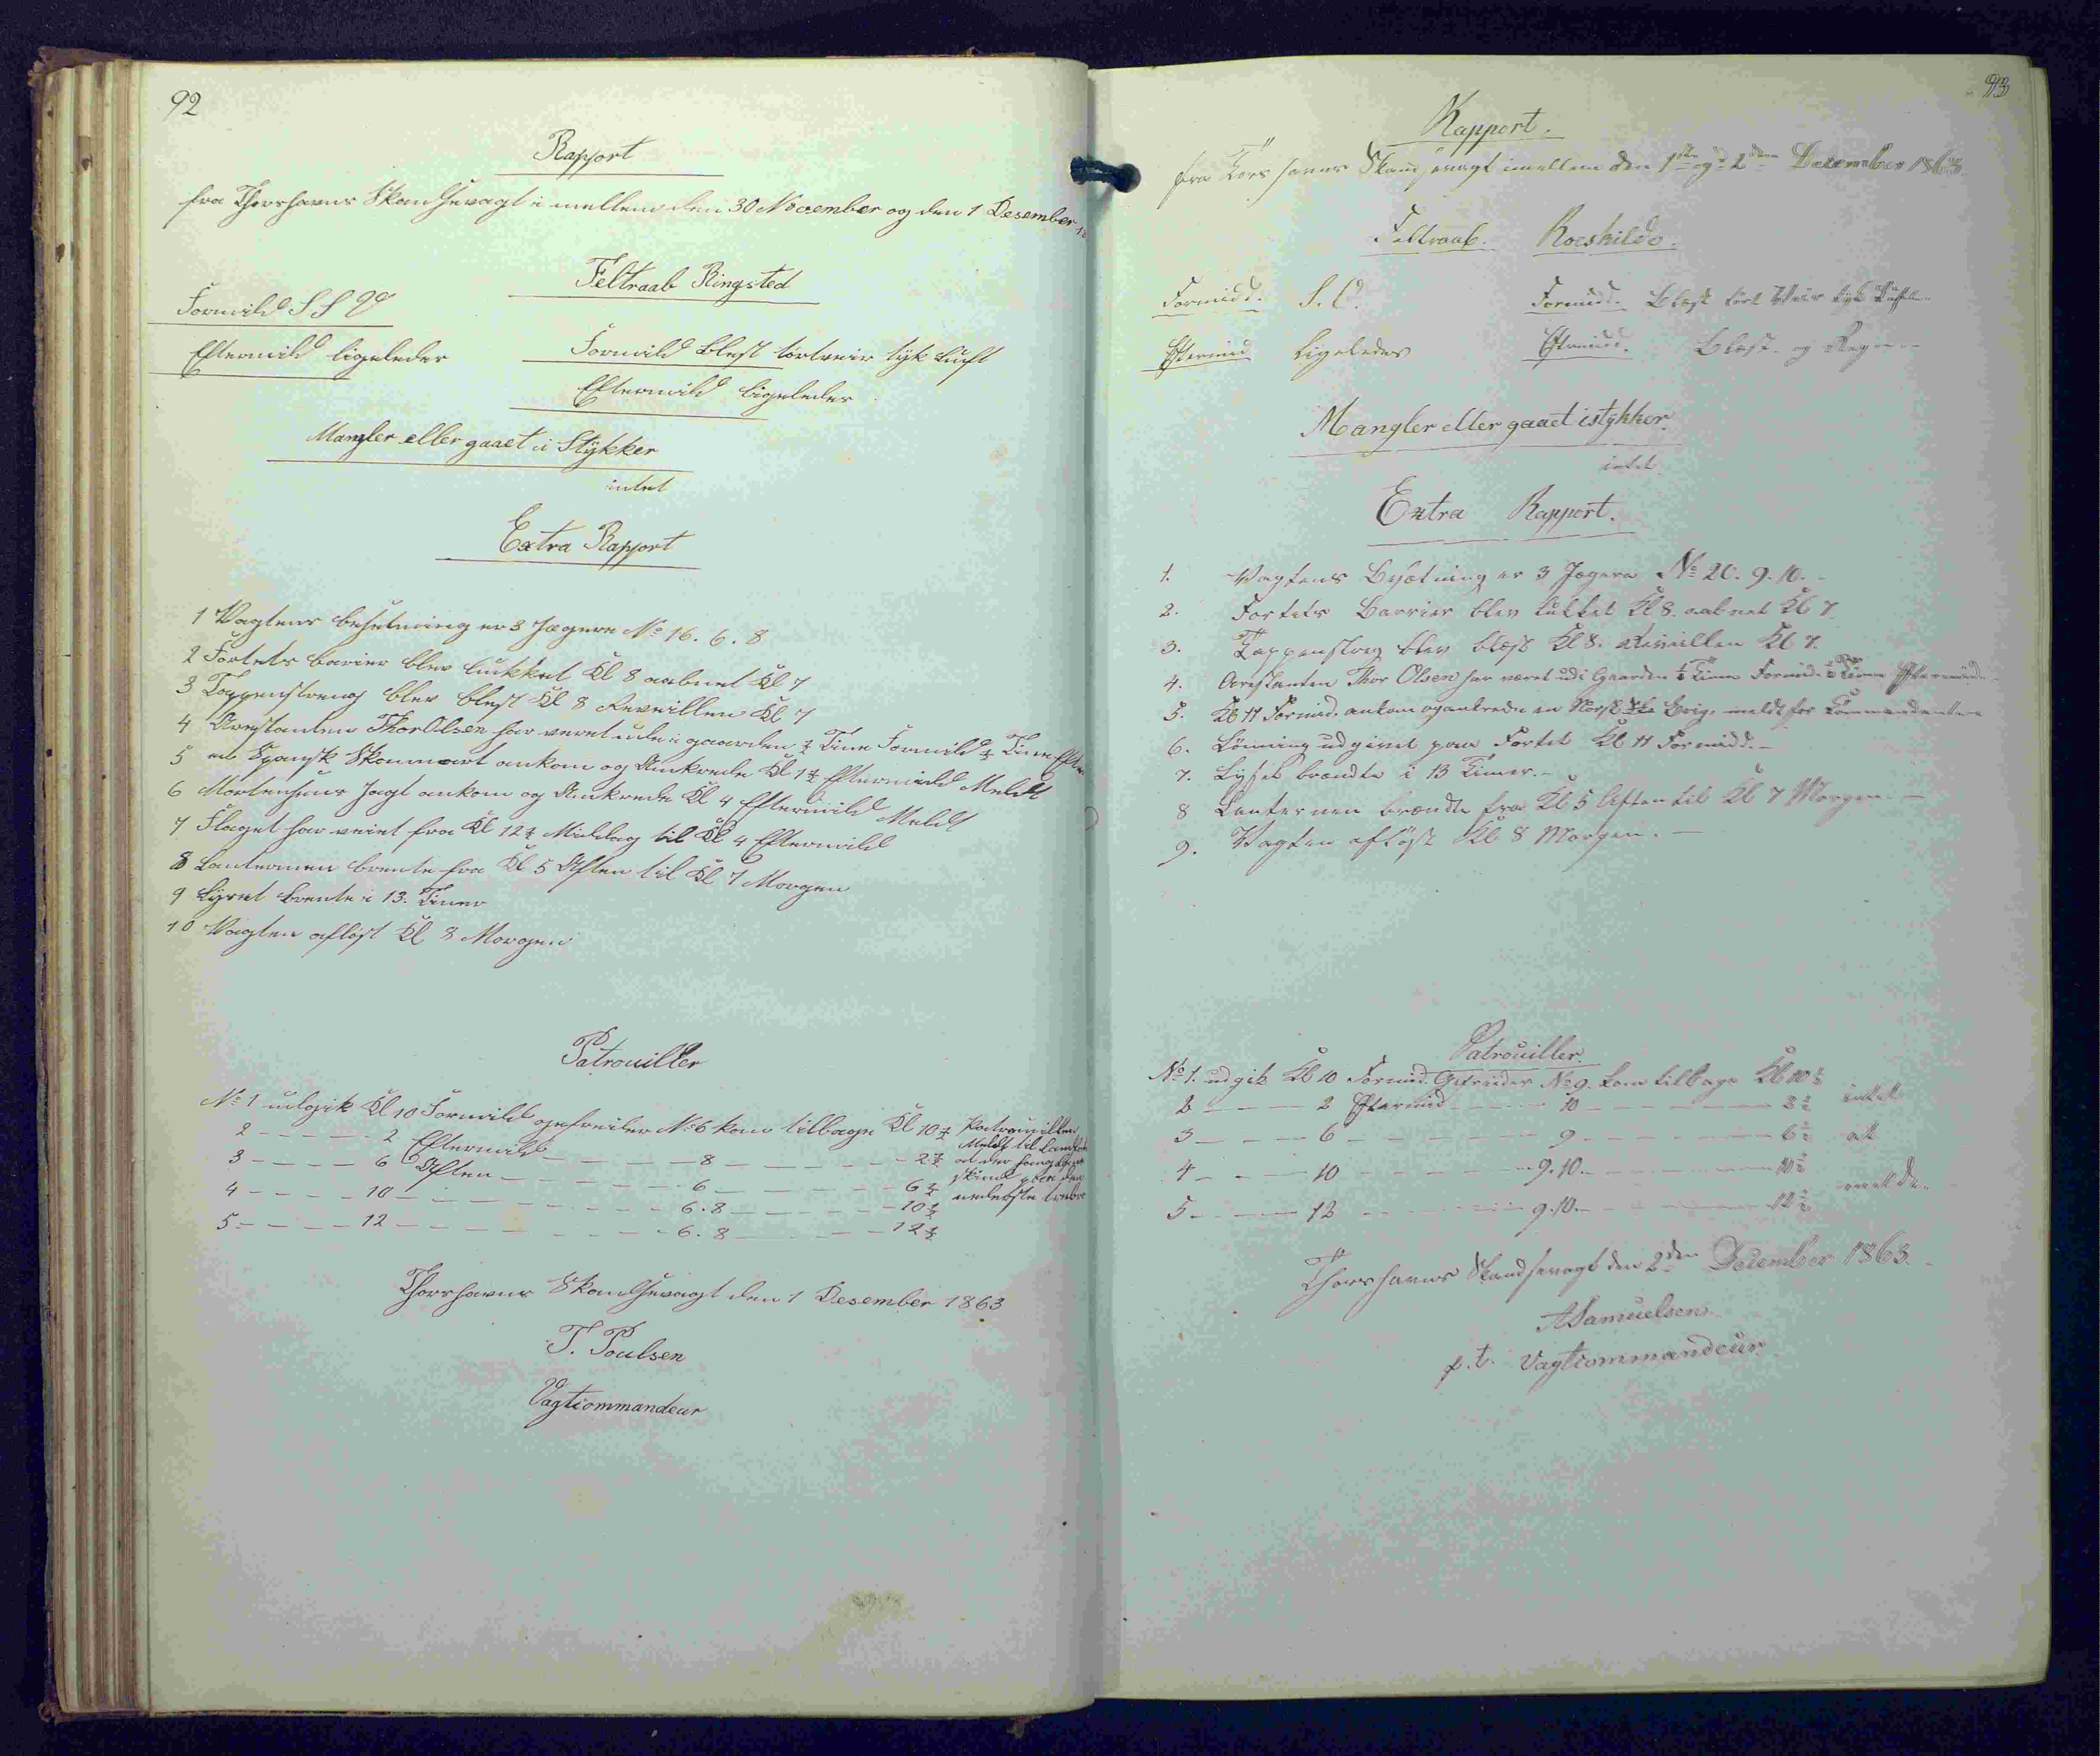 92
Rapport
fra Thorshavns Skandsevagt i mellem den 30 November og den 1 Desember
Feltraab Ringsted
Formidd S S V
Eftermidd ligeledes
Formidd Blest tørt veir tyk Luft
Eftermidd ligeledes
Mangler eller gaaet i Stykker
intet
Extra Rapport
1 Vagtens besetning er 3 Jægere No 16. 6. 8
2 Fortets barier blev lukket Kl 8 aabnet Kl 7
3 Tappenstreng blev blest Kl 8 Reveillen Kl 7
4 Arestanten Thor Olsen har veret ude i gaarden ½ Time Formidd ½ Time
5 en Spansk Skonnert ankom og Ankrede Kl 1½ Eftermidd Meldt
6 Mortensens Jagt ankom og Ankrede Kl 4 Eftermidd Meldt
7 Flaget har veiet fra Kl 12½ Middag til Kl 4 Eftermidd
8 Lanternen brente fra Kl 5 Aften til Kl 7 Morgen
9 Lyset brente i 13. Timer
10 Vagten afløst Kl 8 Morgen
Patrouiller
No 1 udgik Kl 10 Formidd gefreider No 6 kom tilbage Kl 10½ Patrouillen
2 - - - - - 2 Eftermidd - - - - - 8 - - - - - 2½ Meldt til
3 - - - - 6 Aften - - - - - 6 - - - - - 6½
4 - - - - 10 - - - - - 6.8 - - - - 10½
5 - - - - 12 - - - - - 6.8 - - - 12½
Thorshavns Skandsevagt den 1 Desember 1863
T. Poulsen
Vagtcommandeur
93
Rapport.
fra Thorshavns Skandsevagt imellem den 1ste og 2den December 1863.
Feltraab. Roeskilde.
Formidd. S. V. Formidd. Blæst tørt Veir tyk Luft
Eftermid ligeledes Eftermidd. Blæst og Regn
Mangler eller gaaet istykker.
intet
Extra Rapport.
1. Vagtens Besætning er 3 Jægere No 20. 9. 10.
2. Fortets Barrier blev lukket Kl 8. aabnet Kl 7.
3. Tappenstreg blev blæst Kl 8. Reveillen Kl 7.
4. Arestanten Thor Olsen har været udi Gaarden ½ Time Formid. ½ Time Eftermid.
5. Kl 11 Formid. ankom og ankrede en Norsk Brig, meldt for Commandanten
6. Lønning udgivet paa Fortet Kl 11 Formidd.
7. Lyset brændte i 13 Timer.
8 Lanternen brændte fra Kl 5 Aften til Kl 7 Morgen
9. Vagten afløst Kl 8 Morgen.
Patrouiller.
No 1. udgik Kl 10 Formid. Gefreider No 9. kom tilbage Kl 10½
2 - - - 2 Eftermid - - - - 10 - - - - 2½ intet
3 - - - 6 - - - - 9 - - - - 6½ at
4 - - - 10 - - - - 9.10. - - - 10½
5 - - - 12 - - - - 9.10. - - - 12½ melde
Thorshavns Skandsevagt den 2den December 1863.
A Samuelsen
p.t. Vagtcommandeur